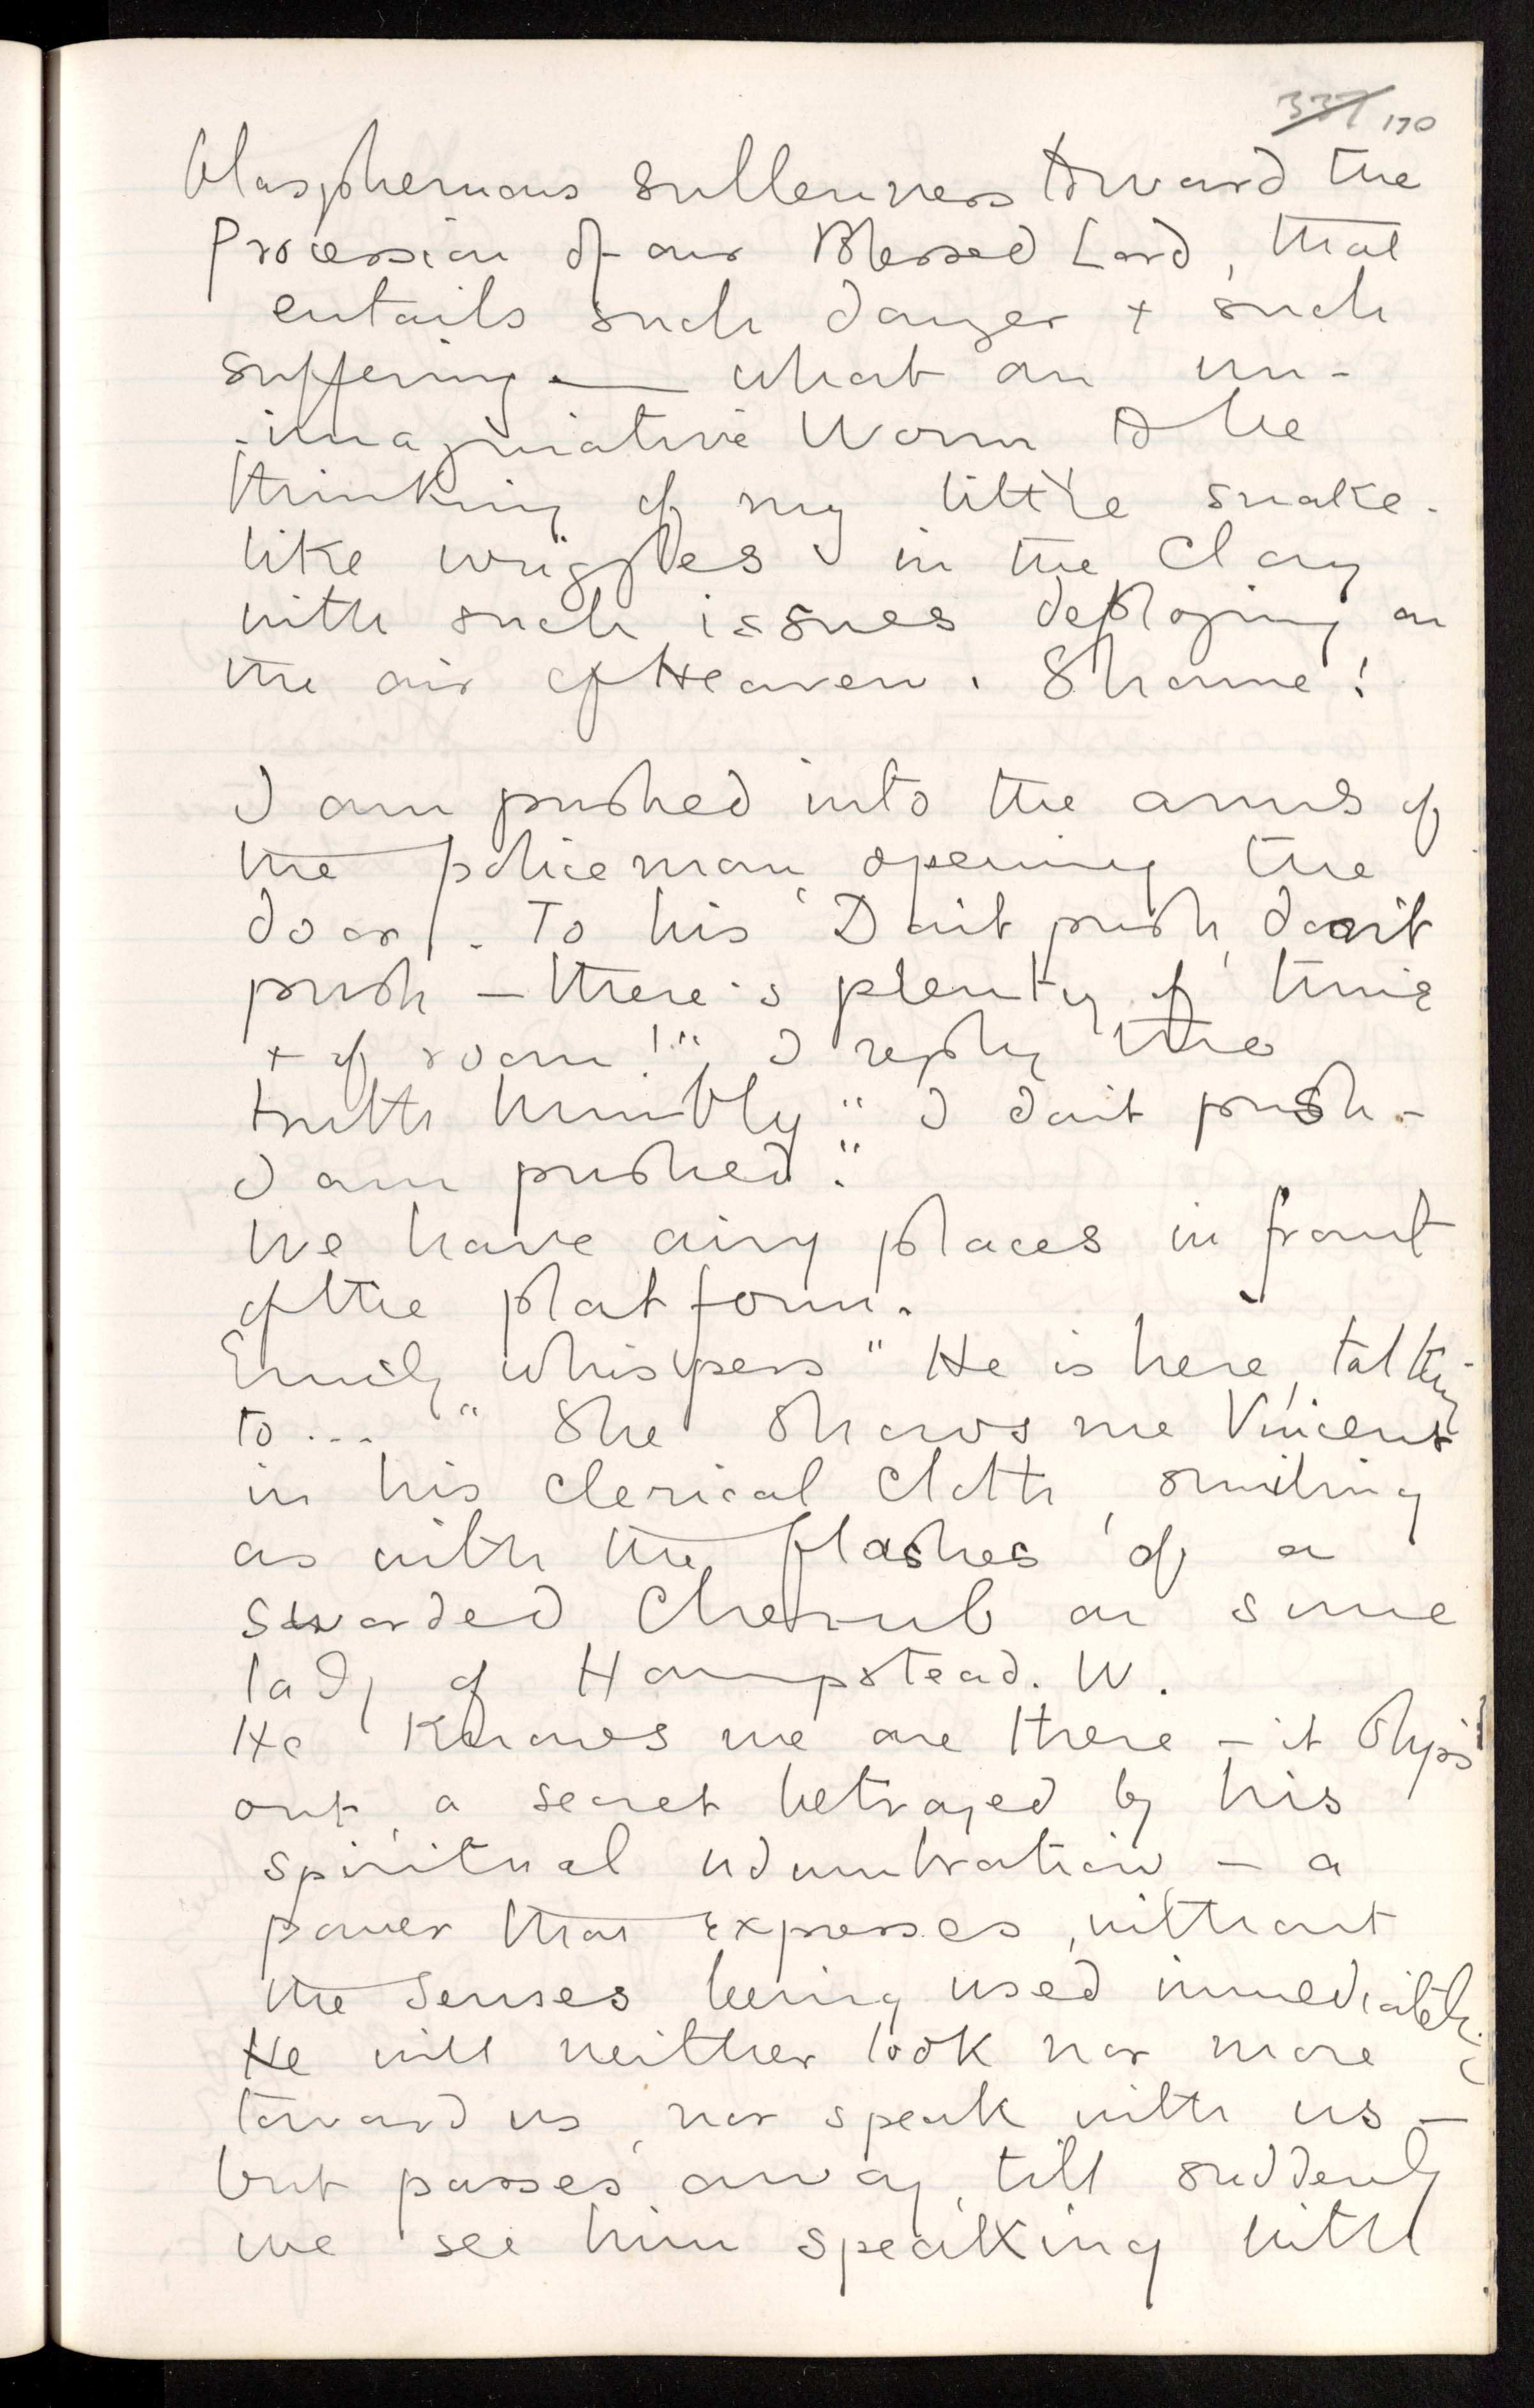 337 170
blasphemous sullenness toward the
Procession of our Blessed Lord, that
entails such danger + such
suffering — what an un-
-imaginative Worm to be
thinking of my little snake-
like wriggles in the Clay
with such issues deploying on
the air of Heaven. Shame!
I am pushed into the arms of
the policeman opening the
door. To his "Don't push, don't
push — there's plenty of time
+ of room!" I reply the
truth humbly "I don't push -
I am pushed."
We have airy places in front
of the platform.
Emily whispers "He is here, talking
to ..." She shows me Vincent
in his clerical cloth, smiling
as with the flashes of a
sworded Cherub on some
lady of Hampstead. W.
He knows we are there — it slips
out, a secret betrayed by his
spiritual adumbration — a
power that expresses, without
the senses being used immediately.
He will neither look nor move
toward us, nor speak with us —
but passes away, till suddenly
we see him speaking with